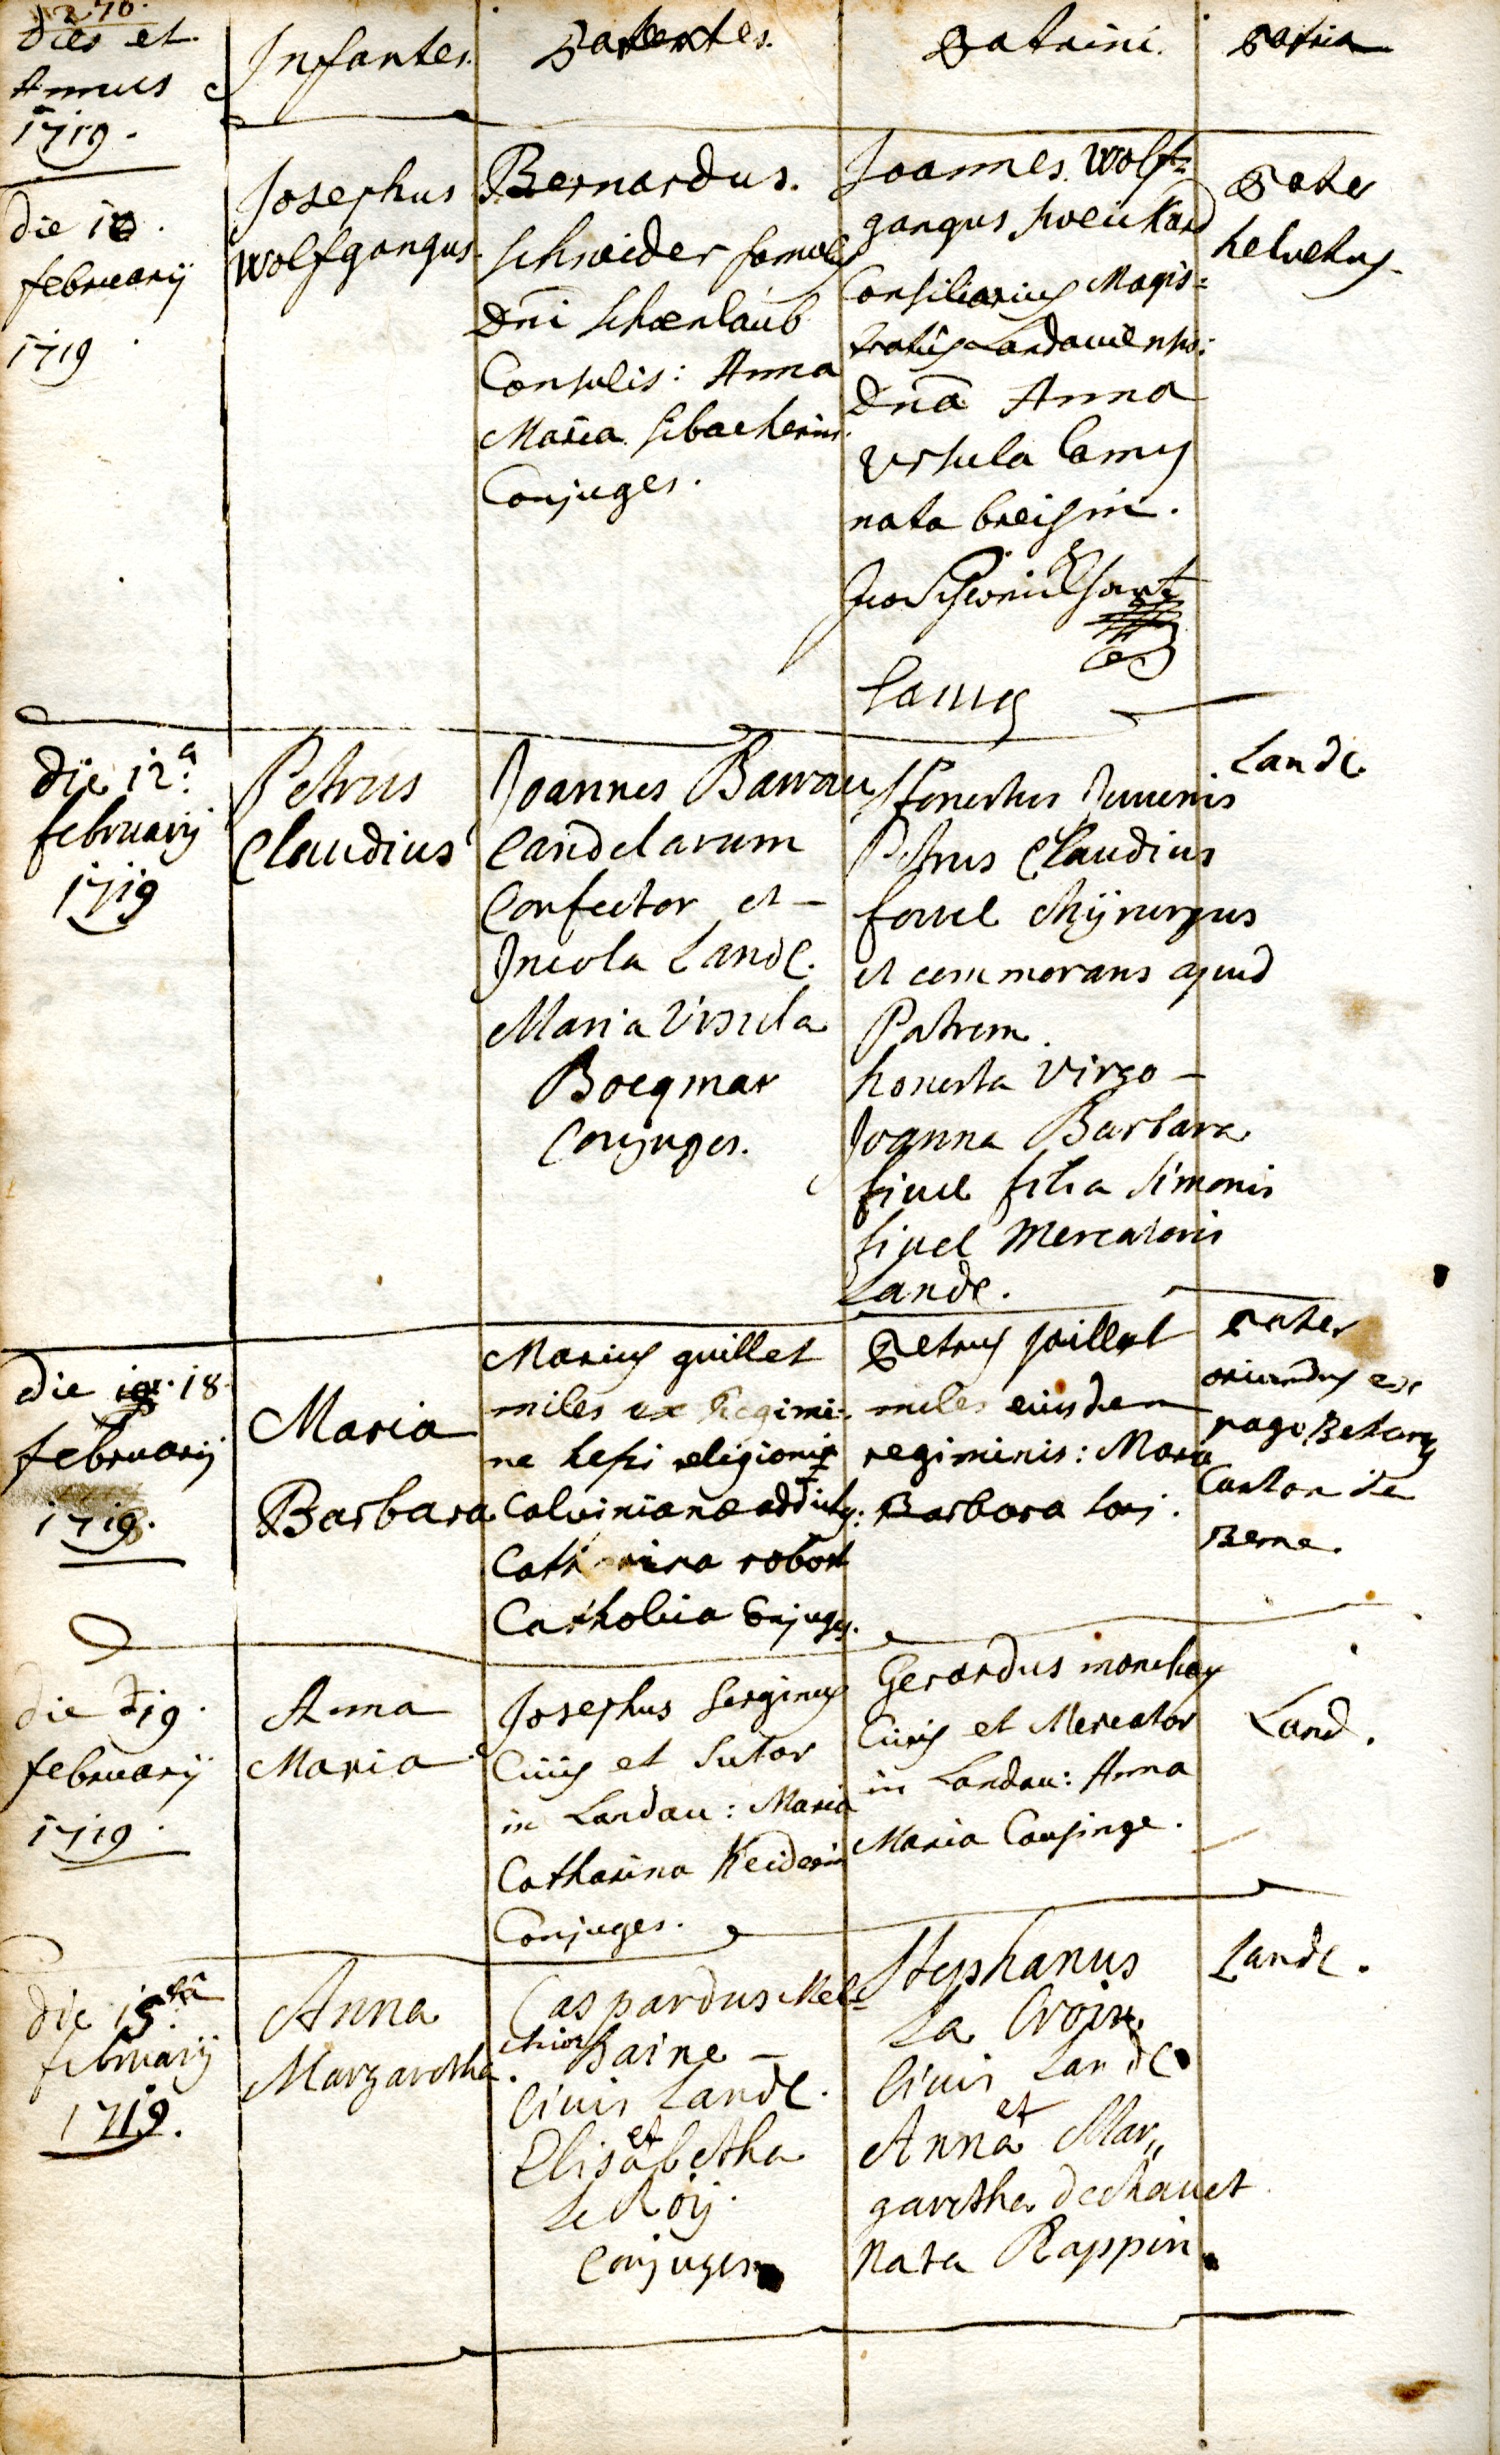 270.
Dies et
Annus
1719.
Infantes.
Parentes.
Patrini.
Patria
die 10.
februarij
1719
Josephus
Wolfgangus.
Bernardus.
schneider famulus
Dni schoenlaub
Consulis: Anna
Maria sibacherin.
Conjuges.
Joannes Wolf=
gangus
Consiliarius Magis=
tratus Landaviensis:
Dna Anna
Ursula Camus
nata
Camus
Pater
helvetus.
die 12.a
februarij
1719
Petrus
Claudius
Joannes Barrau
Candelarum
Confector et -
Incola Land.
Maria Ursula
Bocqmar
Conjuges.
Honestus Juvenis
Petrus Claudius
chijrurgus
et commorans apud
Patrem.
honesta Virgo -
Joanna Barbara
fivel filia Simonis
fivel Mercatoris
Lande.
Lande
die 18.
februarij
1719.
Maria
Barbara
Marius guillet
miles ex Regimi-
ne hessi religionis
Calvinianae addictus:
Catharina robort
Catholica Conjuges.
Petrus
miles eiusdem
regiminis: Maria
Barbara
Pater
oriundus ex
pago
Canton de
Berne.
die 19.
februarij
1719.
Anna
Maria
Josephus Serginus
Civis et Sutor
in Landau: Maria
Catharina Keiderin
Conjuges.
Gerardus monchay
Civis et Mercator
in Landau: Anna
Maria Cousinge.
Land.
die
februarij
1719.
Anna
Margaretha.
Caspardus Mel=
chior Haine -
Civis Lande.
et
Elisabetha
Le Roij.
Conjuges.
Stephanus
La Croix
Civis Lande
et
Anna Mar,,
garetha dechauet
Nata Rappin.
Lande.